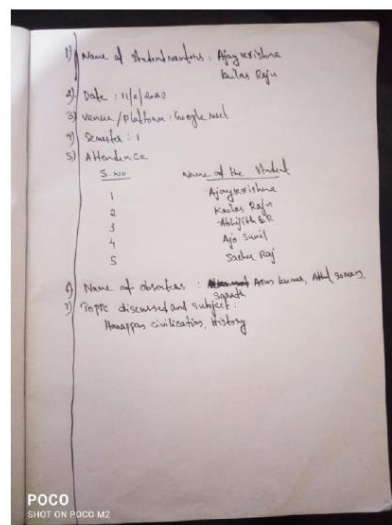 1) Name of Student mentors : Ajaykrishna
Kailas Raju
2) Date : 11/2/2022
3) Venue/Platform : Google meet
4) Semester : 1
5) Attendence
S.No Name of the Student
1 Ajaykrishna
2 Kailas Raju
3 Abhijith E.R
4 Ajo Sunil
5 Sachu Raj
6) Name of absentees : Arun kumar, Athul
Sarath
7) Topic discussed and subject :
Harappan civilization, History
POCO
SHOT ON POCO M2